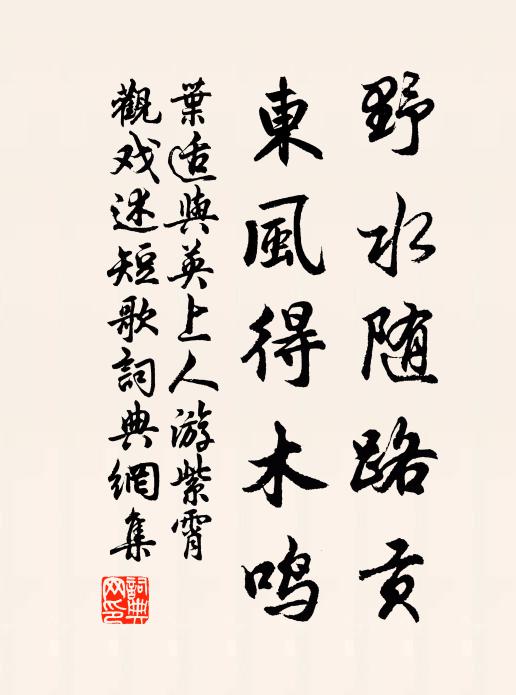 野水随路贡
東風得木鳴
葉适與英上人游紫霄
觀戏述短歌詞典網集
詞典网印